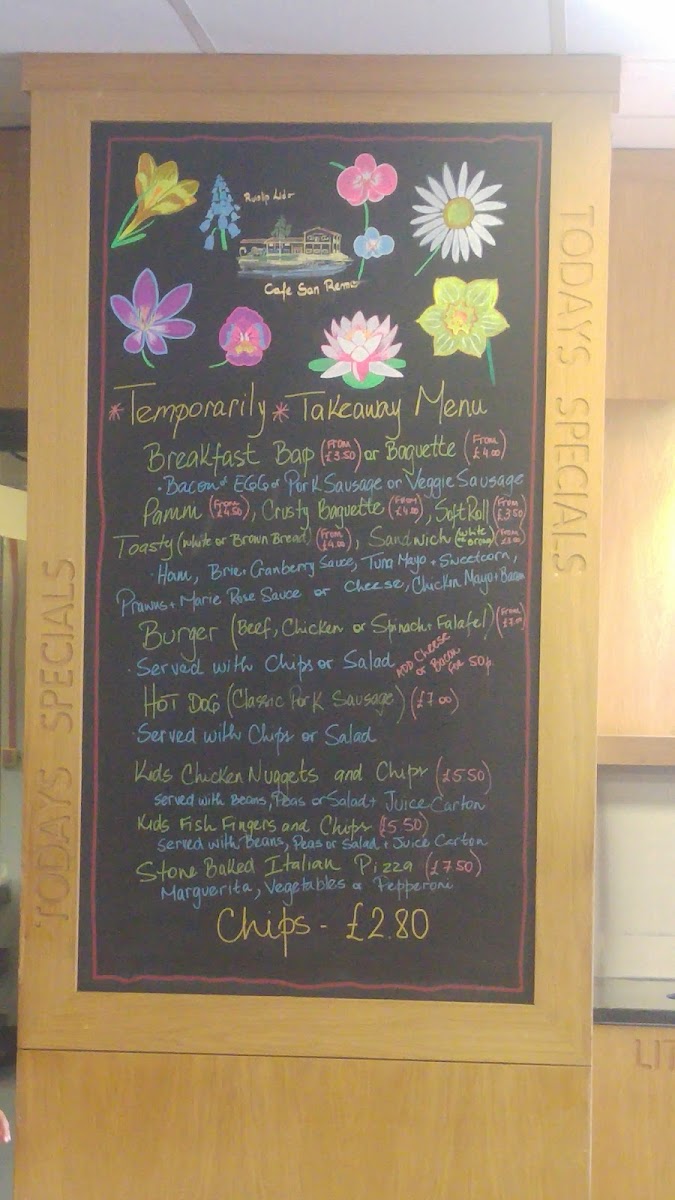 Ruislip Lido
Cafe San Remo
*Temporarily * Takeaway Menu
Breakfast Bap (From £3.50) or Baguette (From £4.00)
• Bacon or EGG or Pork Sausage or Veggie Sausage
Panini (From £4.50), Crusty Baguette (From £4.00), Soft Roll (From £3.50)
Toasty (White or Brown Bread) (From £4.00), Sandwich (White or Brown) (From
• Ham, Brie + Cranberry Sauce, Tuna Mayo + Sweetcorn,
Prawns + Marie Rose Sauce or Cheese, Chicken Mayo + Bacon
Burger (Beef, Chicken or Spinach + Falafel) (From £7.00)
• Served with Chips or Salad
ADD Cheese
or Bacon
for 50p
HOT DOG (Classic Pork Sausage) (£7.00)
• Served with Chips or Salad
Kids Chicken Nuggets and Chips (£5.50)
Served with Beans, Peas or Salad + Juice Carton
Kids Fish Fingers and Chips (£5.50)
Served with Beans, Peas or Salad + Juice Carton
Stone Baked Italian Pizza (£7.50)
Marguerita, Vegetables or Pepperoni
Chips - £2.80
TODAYS SPECIALS
TODAYS SPECIALS
LIT